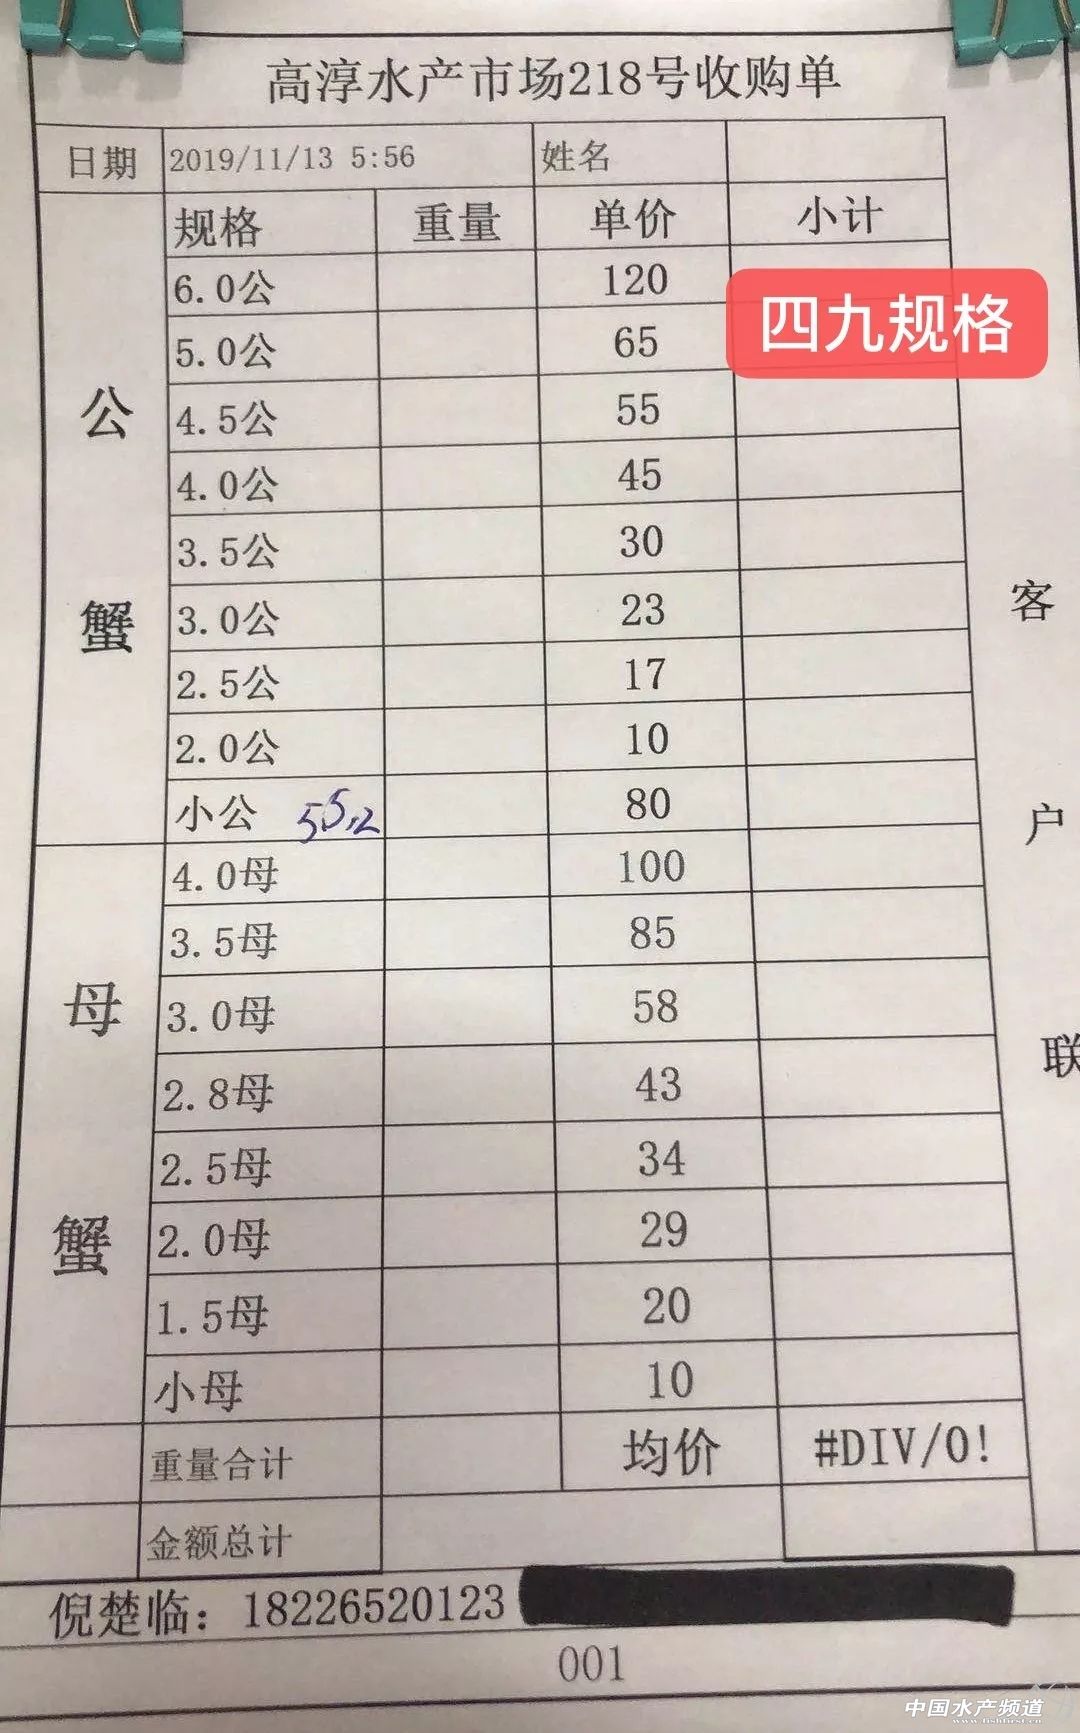 高淳水产市场218号收购单
日期 2019/11/13 5:56 姓名
规格 重量 单价 小计
6.0公 120
四九规格
5.0公 65
4.5公 55
公
4.0公 45
3.5公 30
客
3.0公 23
蟹
2.5公 17
2.0公 10
小公 55.2 80
户
4.0母 100
3.5母 85
3.0母 58
母
联
2.8母 43
2.5母 34
2.0母 29
蟹
1.5母 20
小母 10
重量合计 均价 #DIV/0!
金额总计
倪楚临：18226520123
001
中国水产频道
www.fishfirst.cn